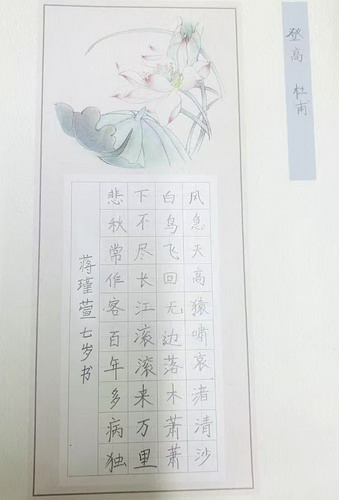 登高 杜甫
风急天高猿啸哀渚清沙
白鸟飞回无边落木萧萧
下不尽长江滚滚来万里
悲秋常作客百年多病独
蒋瑾萱七岁书